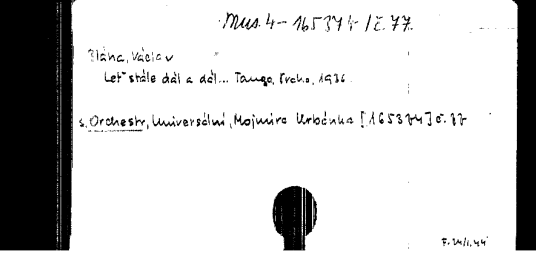 Mus. 4 - 165374 / č. 77.
Bláha, Václav
Leť stále dál a dál... Tango, 1936.
s. Orchestr, Universální, Mojmíra Urbánka [165374] č. 77
F. 24/1, 44